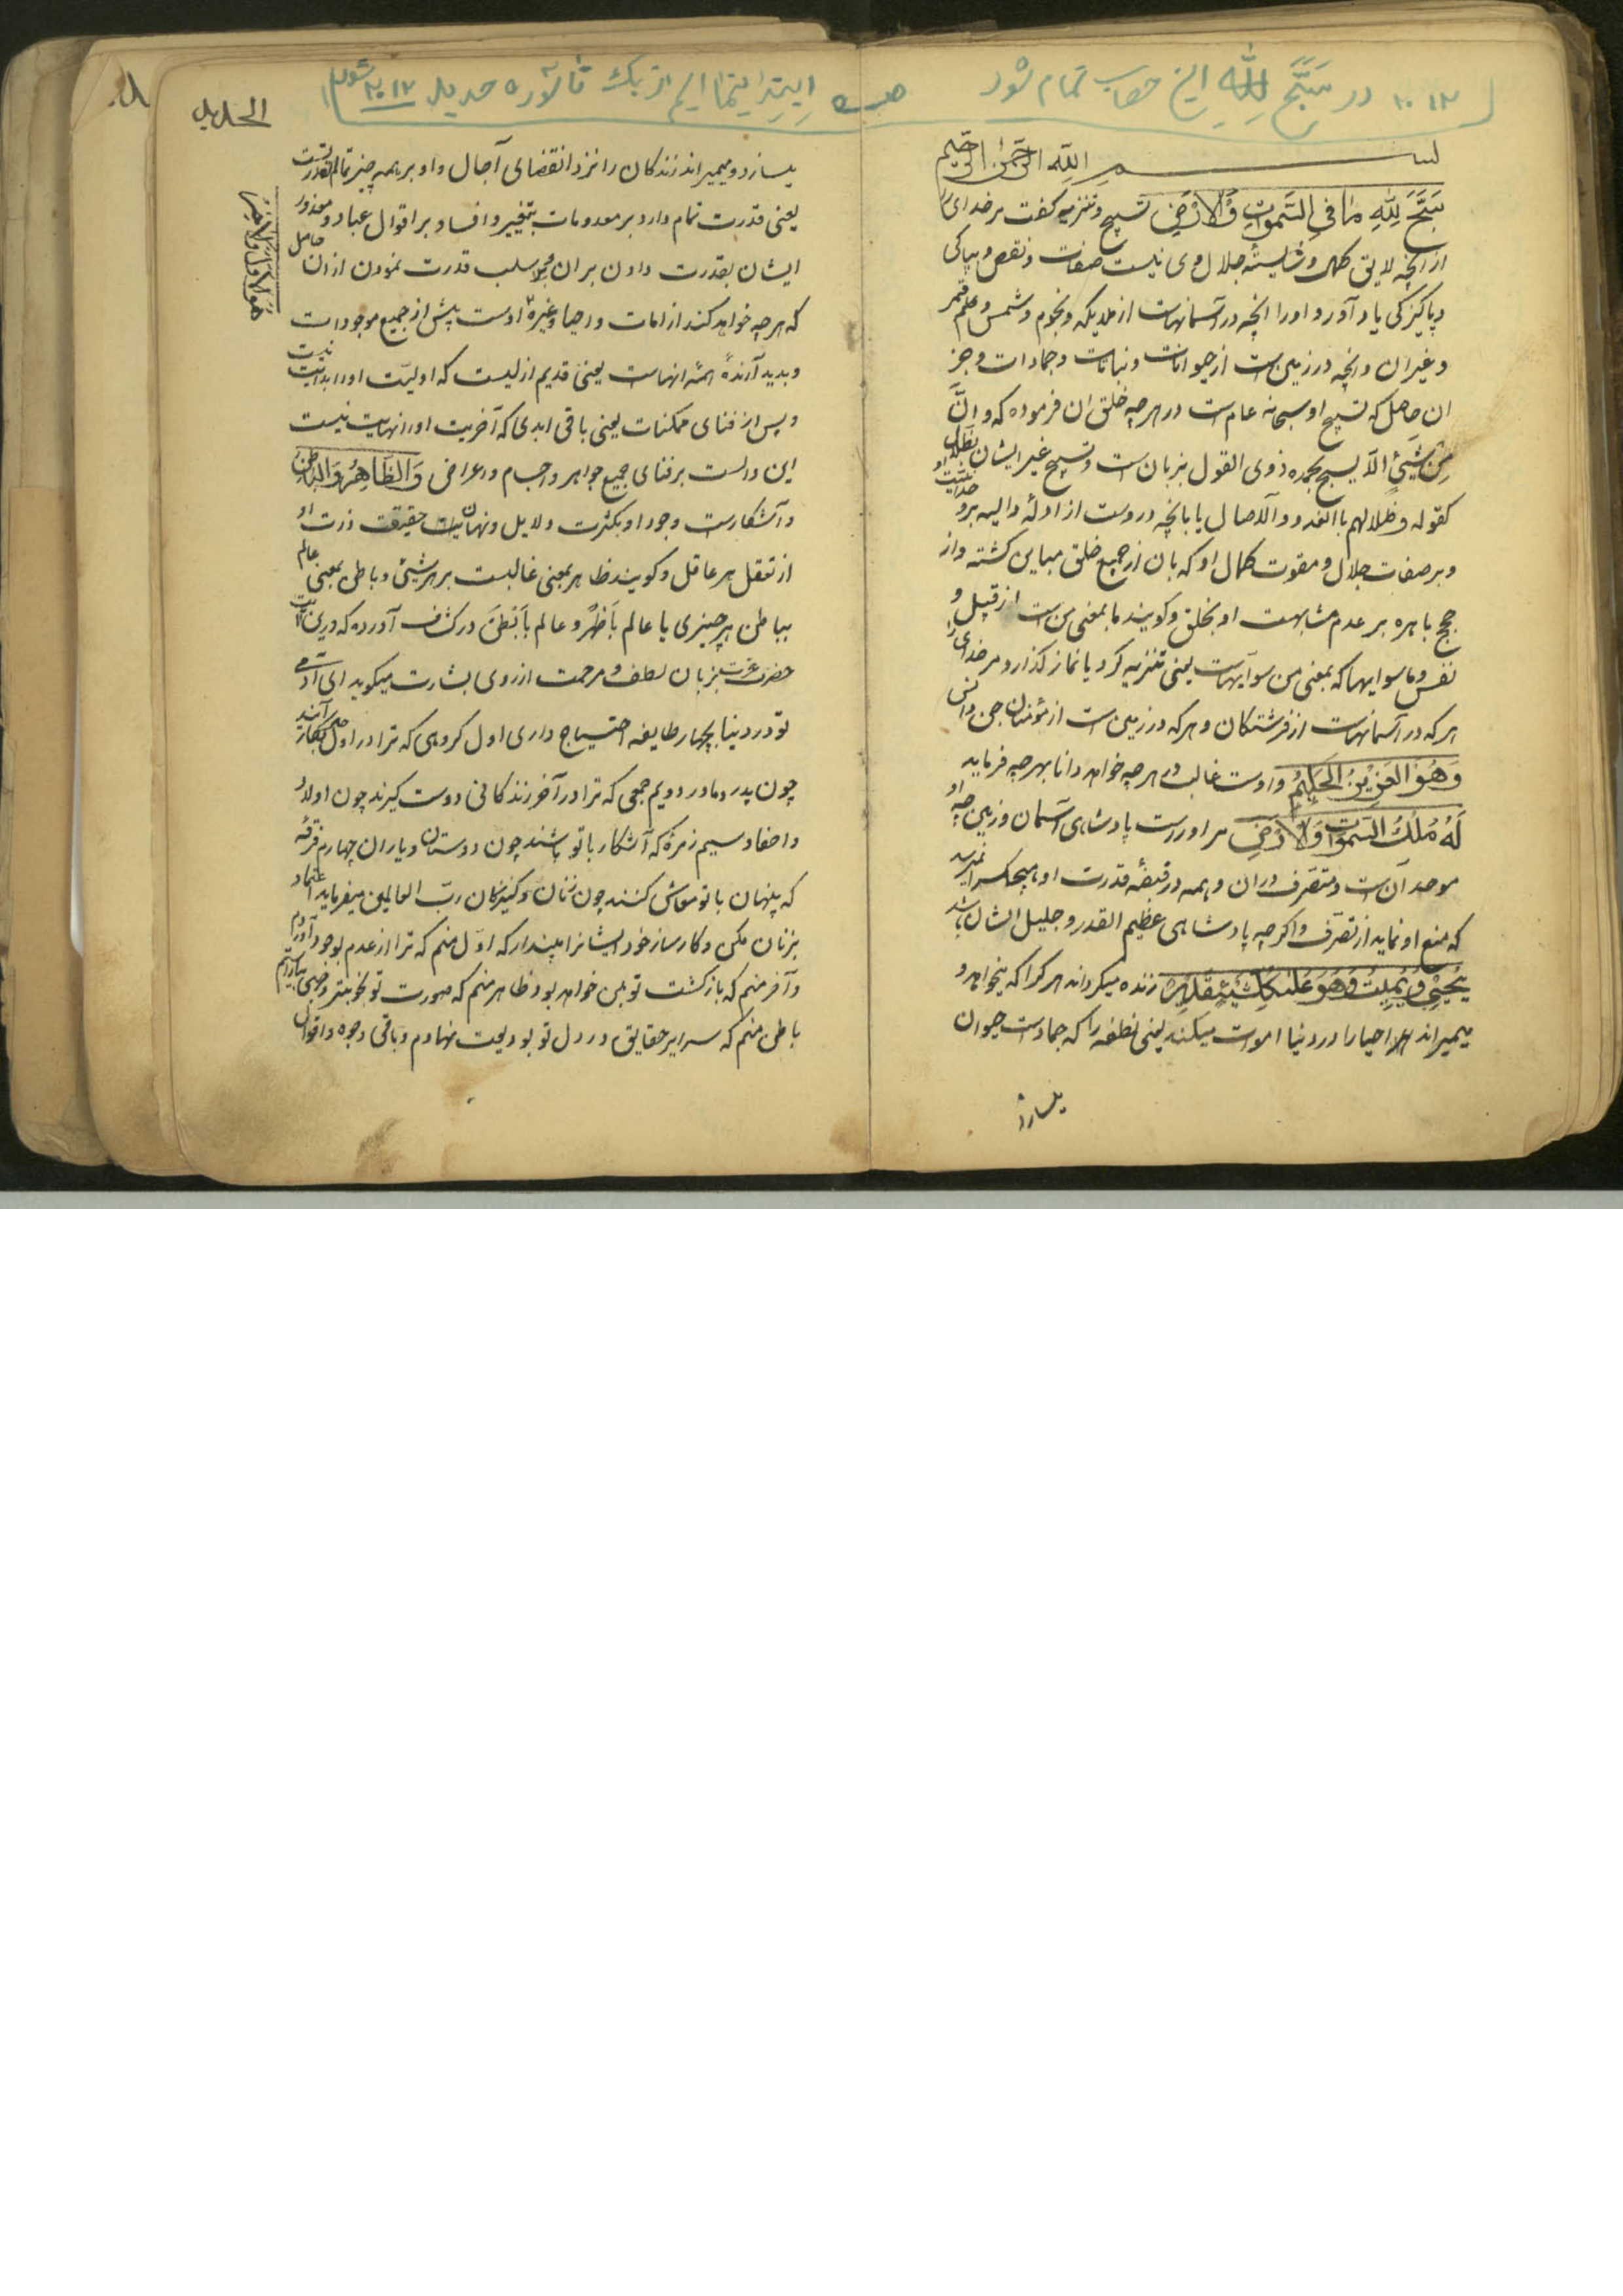 در سَبَّحَ لِلّهِ این حساب تمام شود
بسم الله الرحمن الرحیم
سَبَّحَ لِلّهِ مَا فِی السَّمٰوَاتِ وَالْاَرْضِ تسبیح و تنزیه گفت مر خدای را
از آنچه لایق و شایستهٔ جلال وی نیست صفات و نقص و بپاکی
و پاکیزکی یاد آورد او را آنچه در آسمانهاست از ملایکه و نجوم و شمس و قمر
و غیر ان و آنچه در زمین است از حیوانات و نباتات و جمادات و جز
ان حاصل که تسبیح او سبحانه عام است در هر چه خلق ان فرموده که و انّ
مِن شَیْءٍ الّا یسبح بحمده ذوی القول بزبان است و تسبیح غیر ایشان
کقوله و ظلالهم بالغدو و الآصال یا بآنچه دروست از ادلّه داله بر
و بر صفات جلال و کمال او که بان از جمیع خلق مباین کشته و از
حجج باهره بر عدم مشابهت او بخلق و کویند ما بمعنی من است از قبیل و
نفس و ما سوایها که بمعنی من سوایهاست یعنی تنزیه کرد یا نماز کذارد مر خدای را
هر که در آسمانهاست از فرشتکان و هر که در زمین است از مؤمنان جن و انس
وَهُوَ الْعَزِیزُ الْحَکِیمُ و اوست غالب هر چه خواهد دانا بهر چه فرماید
لَهُ مُلْکُ السَّمٰوَاتِ وَالْاَرْضِ مر او راست پادشاهی آسمان و زمین چه او
موجد آن است و متصرف دران و همه در قبضهٔ قدرت او و هیچکس را نمیرسد
که منع او نماید از تصرّف و اکر چه پادشاهی عظیم القدر و جلیل الشان باشد
یُحْیِی وَیُمِیتُ وَهُوَ عَلٰی کُلِّ شَیْءٍ قَدِیرٌ زنده میکرداند هر کرا که میخواهد و
میمیراند احیا را در دنیا اموات میکند یعنی نطفه را که جمادست حیوان
یسازد
الحدید
یسازد و میمیراند زندکان را نزد انقضای آجال و او بر همه چیز تمام قدرت
یعنی قدرت تمام دارد بر معدومات بتغییر و افساد بر اقوال عباد و
ایشان بقدرت دادن بر ان سلب قدرت نمودن از ان حاصل
که هر چه خواهد کند از امات و احیا و غیره اوست پیش از جمیع موجودات
و پدید آرندهٔ همهٔ انهاست یعنی قدیم ازلیست که اولیّت او را بدایت نیست
و پس از فنای ممکنات یعنی باقی ابدی که آخریت او را نهایت نیست
این دالست بر فنای جمیع جواهر و اجسام و اعراض وَالظَّاهِرُ وَالْبَاطِنُ
و آشکارست وجود او بکثرت دلایل و نهانست حقیقت ذات او
از تعقل هر عاقل و کویند ظاهر بمعنی غالبست بر هر شیئ و باطن بمعنی عالم
بباطن هر چیزی یا عالم بما ظهر و عالم بما بطن در کشف آورده که درین
حضرت عزت بزبان لطف و مرحمت از روی بشارت میکوید ای آدمی
تو در دنیا بچهار طایفه احتیاج داری اول کروهی که ترا در اول بکار آیند
چون پدر و مادر دویم جمعی که ترا در آخر زندکانی دوست کیرند چون اولاد
و احفاد سیم زمرهٔ که آشکار با تو باشند چون دوستان و یاران چهارم فرقهٔ
که پنهان با تو معاش کنند چون زنان و کنیزکان ربّ العالمین میفرماید اعتماد
بر اینان مکن و کارساز خود ایشانرا مپندار که اوّل منم که ترا از عدم بوجود آوردم
و آخر منم که بازکشت تو بمن خواهد بود ظاهر منم که صورت تو بخوبتر وجهی بیاراستم
باطن منم که سرایر حقایق در دل تو بودیعت نهادم و باقی وجوه و اقوال